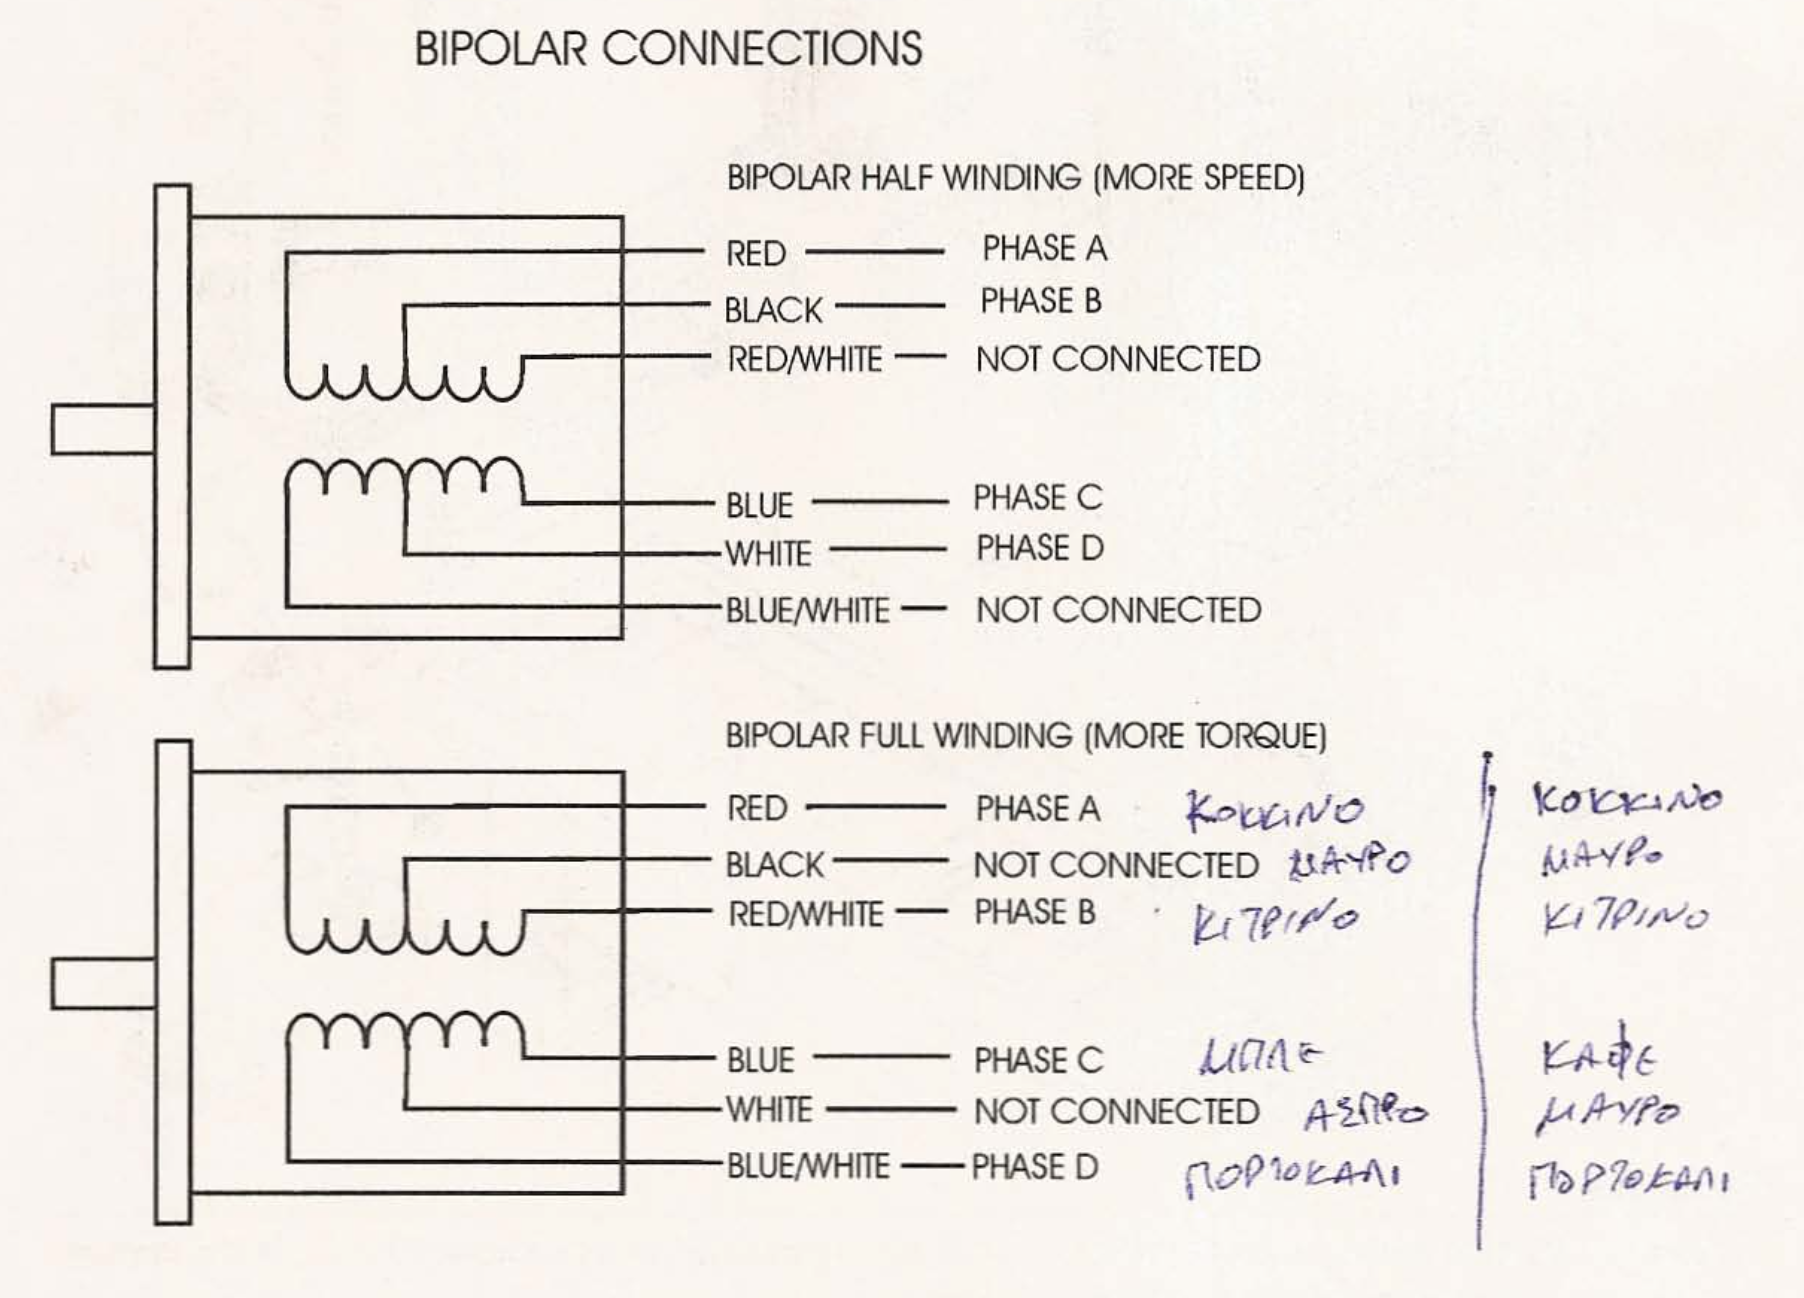 BIPOLAR CONNECTIONS
BIPOLAR HALF WINDING (MORE SPEED)
RED PHASE A
BLACK PHASE B
RED/WHITE NOT CONNECTED
BLUE PHASE C
WHITE PHASE D
BLUE/WHITE NOT CONNECTED
BIPOLAR FULL WINDING (MORE TORQUE)
RED PHASE A ΚΟΚΚΙΝΟ ΚΟΚΚΙΝΟ
BLACK NOT CONNECTED ΜΑΥΡΟ ΜΑΥΡΟ
RED/WHITE PHASE B ΚΙΤΡΙΝΟ ΚΙΤΡΙΝΟ
BLUE PHASE C ΜΠΛΕ ΚΑΦΕ
WHITE NOT CONNECTED ΑΣΠΡΟ ΜΑΥΡΟ
BLUE/WHITE PHASE D ΠΟΡΤΟΚΑΛΙ ΠΟΡΤΟΚΑΛΙ